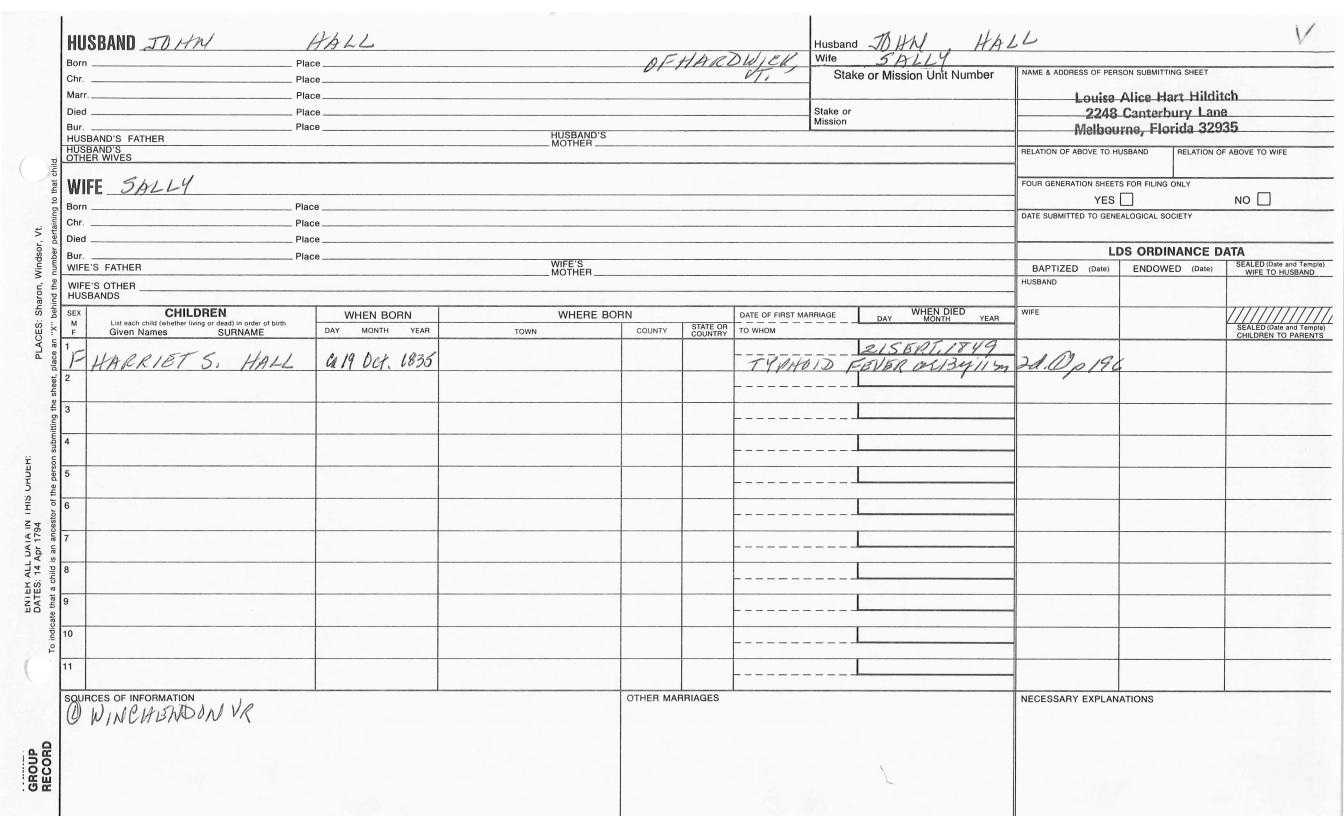 HUSBAND JOHN HALL
Husband JOHN HALL V
Born Place OF HARDWICK, VT.
Wife SALLY
Chr. Place
Stake or Mission Unit Number
NAME & ADDRESS OF PERSON SUBMITTING SHEET
Louise Alice Hart Hilditch
2248 Canterbury Lane
Melbourne, Florida 32935
Marr. Place
Died Place
Stake or Mission
Bur. Place
HUSBAND'S FATHER
HUSBAND'S MOTHER
HUSBAND'S OTHER WIVES
RELATION OF ABOVE TO HUSBAND
RELATION OF ABOVE TO WIFE
WIFE SALLY
FOUR GENERATION SHEETS FOR FILING ONLY
YES NO
Born Place
DATE SUBMITTED TO GENEALOGICAL SOCIETY
Chr. Place
Died Place
Bur. Place
LDS ORDINANCE DATA
WIFE'S FATHER
WIFE'S MOTHER
BAPTIZED (Date)
ENDOWED (Date)
SEALED (Date and Temple) WIFE TO HUSBAND
WIFE'S OTHER HUSBANDS
HUSBAND
SEX M F
CHILDREN
List each child (whether living or dead) in order of birth
Given Names SURNAME
WHEN BORN
DAY MONTH YEAR
WHERE BORN
TOWN COUNTY STATE OR COUNTRY
DATE OF FIRST MARRIAGE
TO WHOM
WHEN DIED
DAY MONTH YEAR
WIFE
SEALED (Date and Temple) CHILDREN TO PARENTS
1
21 SEPT. 1849
F HARRIET S. HALL ca 19 Oct. 1835 TYPHOID FEVER ae 13y 11m 2d. ① p 196
2
3
4
5
6
7
8
9
10
11
SOURCES OF INFORMATION
① WINCHENDON VR
OTHER MARRIAGES
NECESSARY EXPLANATIONS
ENTER ALL DATA IN THIS ORDER:
DATES: 14 Apr 1794
PLACES: Sharon, Windsor, Vt.
To indicate that a child is an ancestor of the person submitting the sheet, place an "X" behind the number pertaining to that child.
GROUP
RECORD